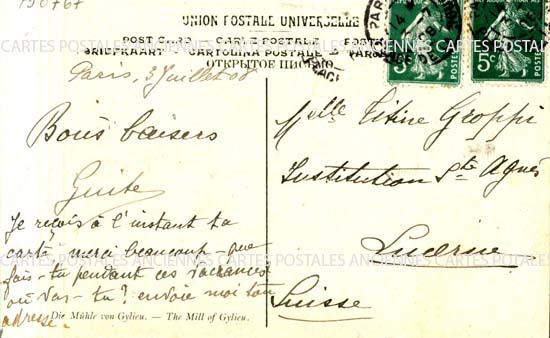 130767
UNION POSTALE UNIVERSELLE
POST CARD — CARTE POSTALE
BRIEFKAART — CARTOLINA POSTALE
ОТКРЫТОЕ ПИСЬМО.
PARIS
5c POSTES
5c POSTES
Paris, 3 Juillet 08
Bons baisers
Guite
Je reçois à l'instant ta
carte, merci beaucoup - que
fais-tu pendant ces vacances
où vas-tu? envoie moi ton
adresse.
Melle Titine Groppi
Institution Ste Agnès
Lucerne
Suisse
Die Mühle von Gylieu. — The Mill of Gylieu.
CARTES POSTALES ANCIENNES CARTES POSTALES ANCIENNES CARTES POSTALES
CARTES POSTALES ANCIENNES CARTES POSTALES